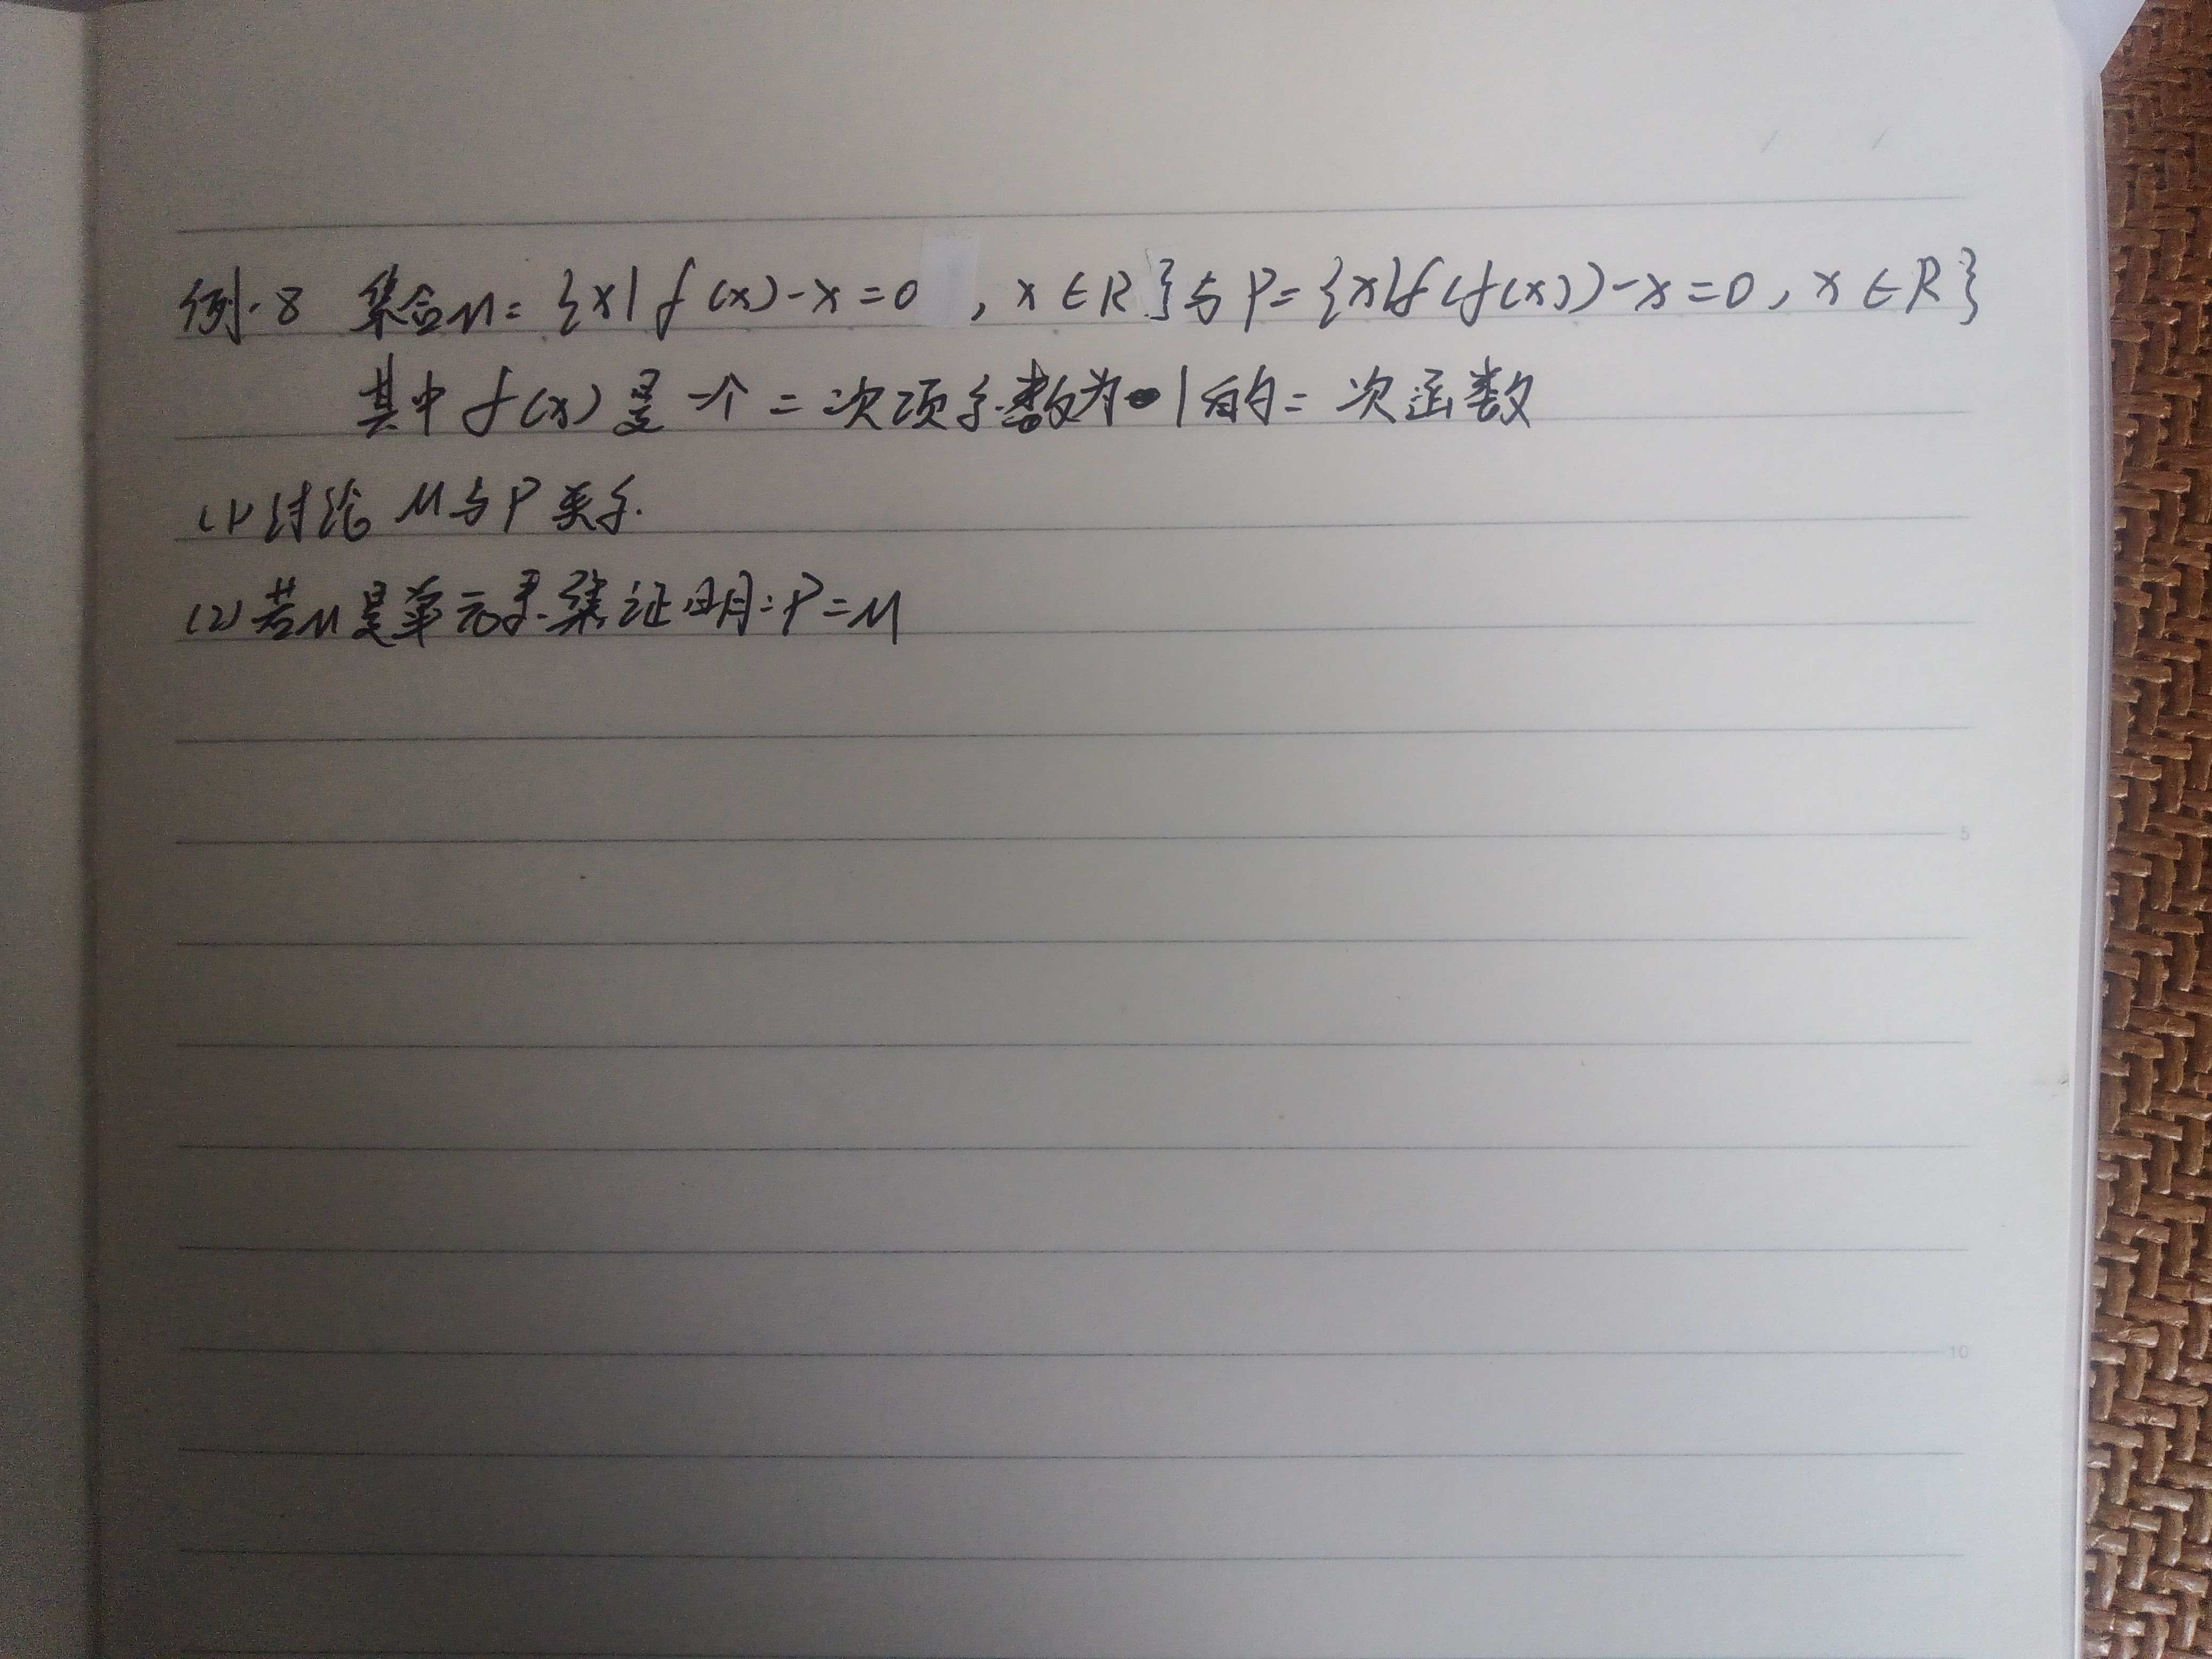 例.8 集合M={x|f(x)-x=0 ,x∈R}与P={x|f(f(x))-x=0,x∈R}
其中f(x)是一个二次项系数为1的二次函数
(1)讨论M与P关系.
(2)若M是单元素集证明:P=M
5
10